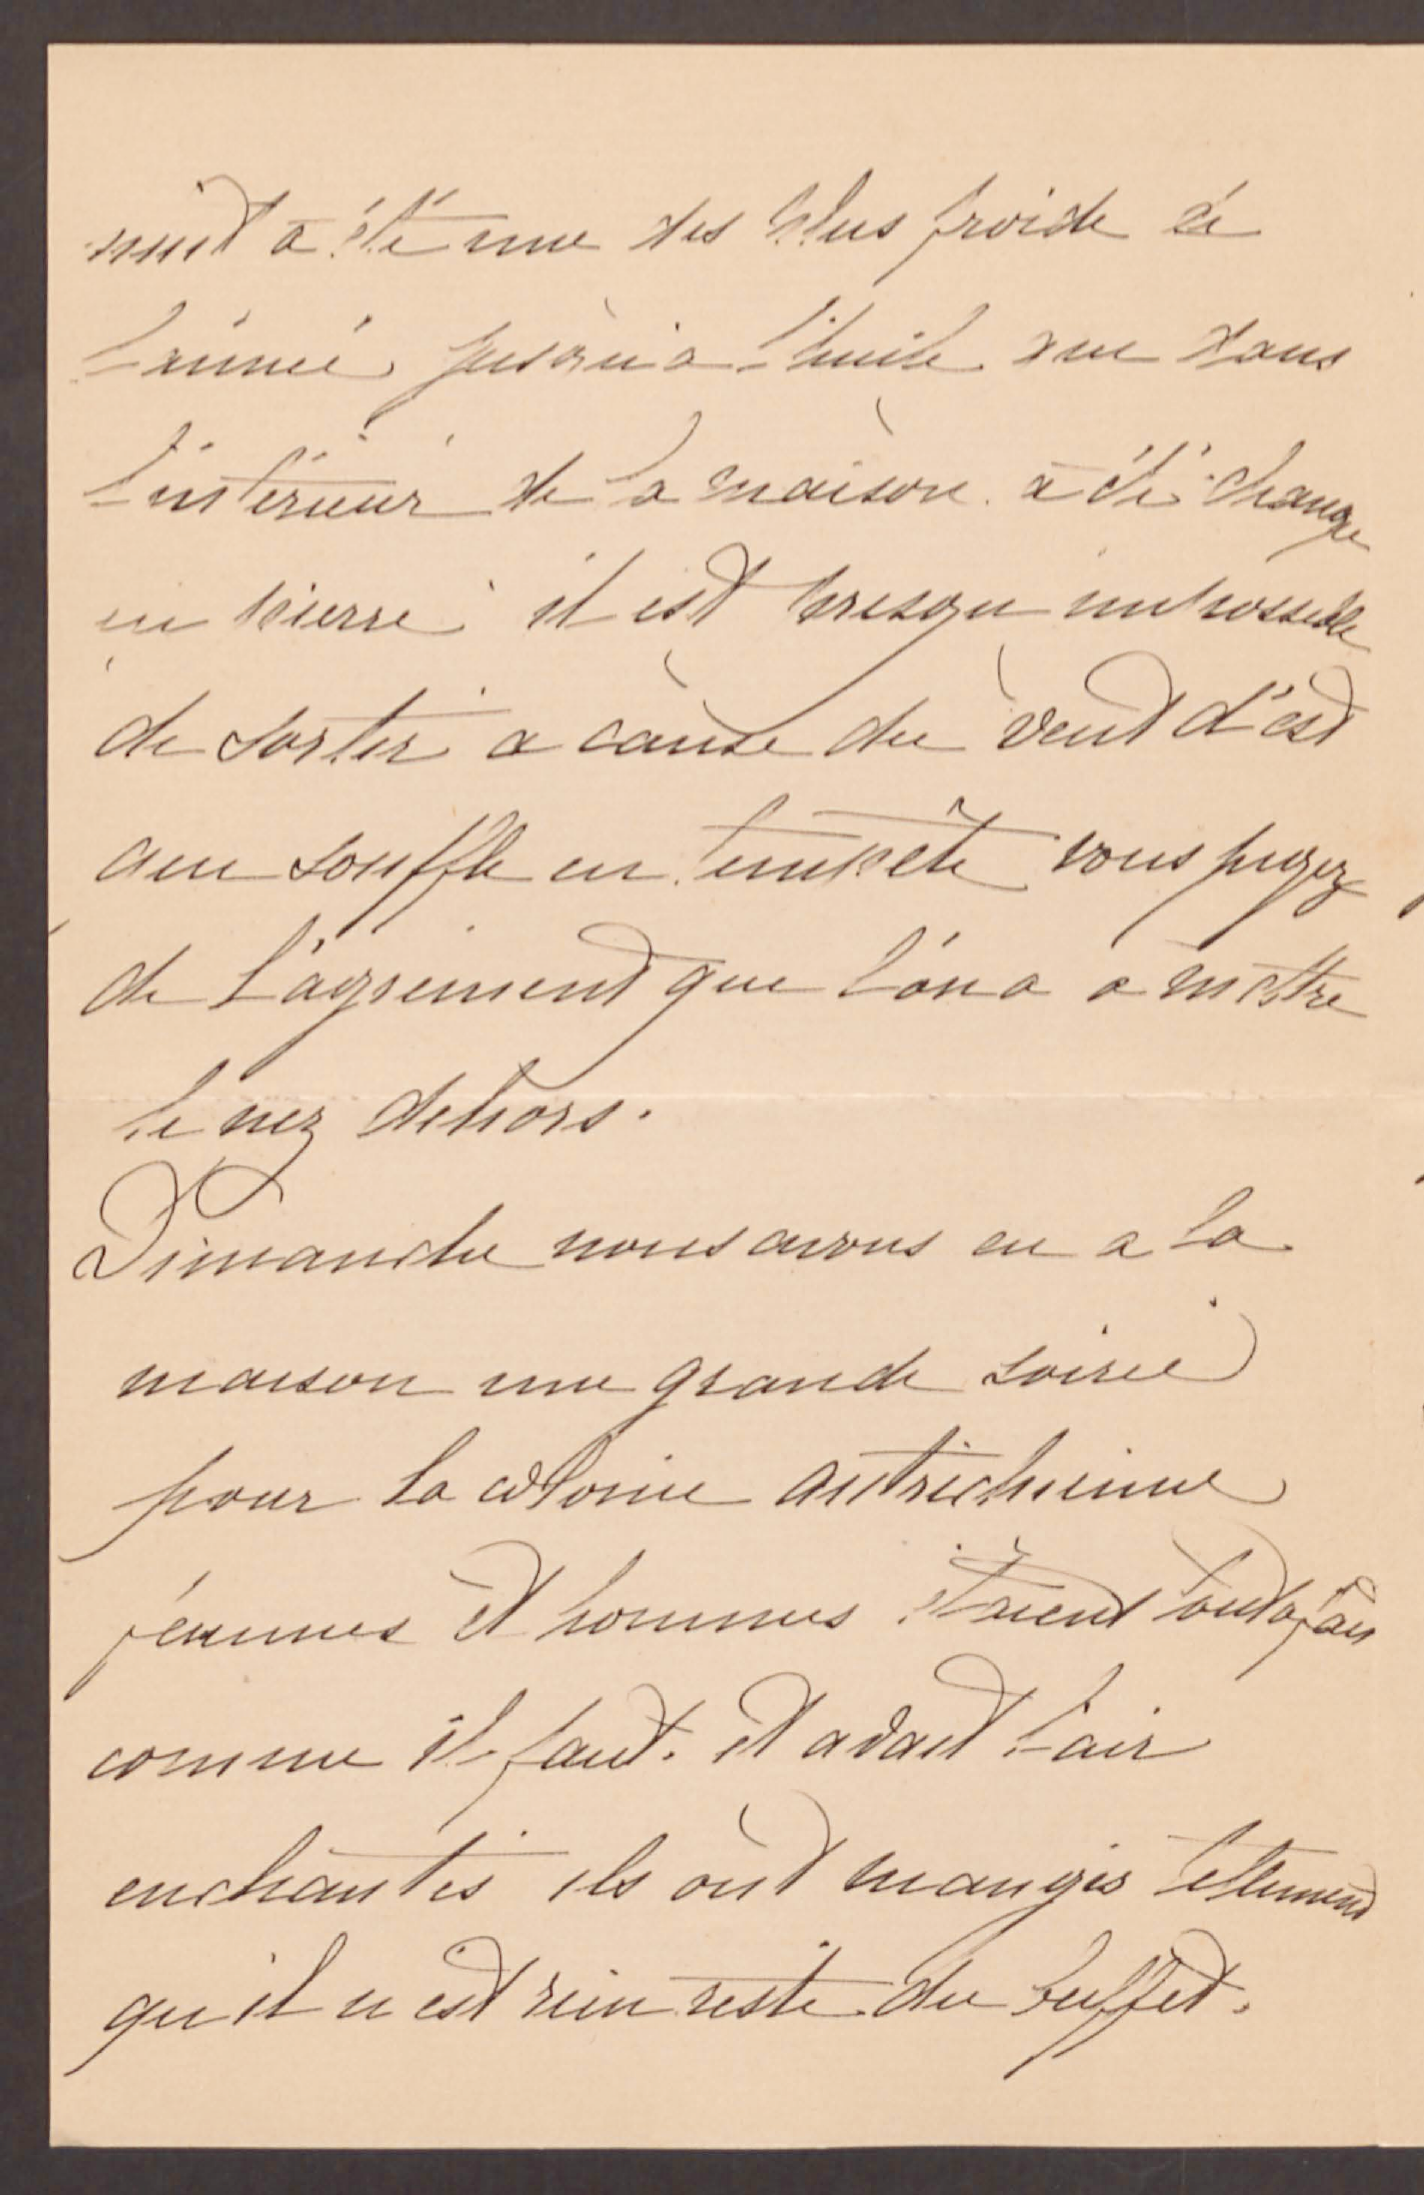 nuit a été une des plus froide de
l'année jusqu'a l'huile que dans
l'intérieur de la maison a été change
en pierre il est presqu impossible
de sortir a cause du vent d'est
qui souffle en tempête vous jugez
de l'agrement que l'on a a mettre
le nez dehors.
Dimanche nous avons eu a la
maison une grande soirée
pour la colonie autrichienne
femmes et hommes étaient toutafais
comme il faut. et avait l'air
enchantés ils ont mangés tellement
qu il n est rien reste du buffet.